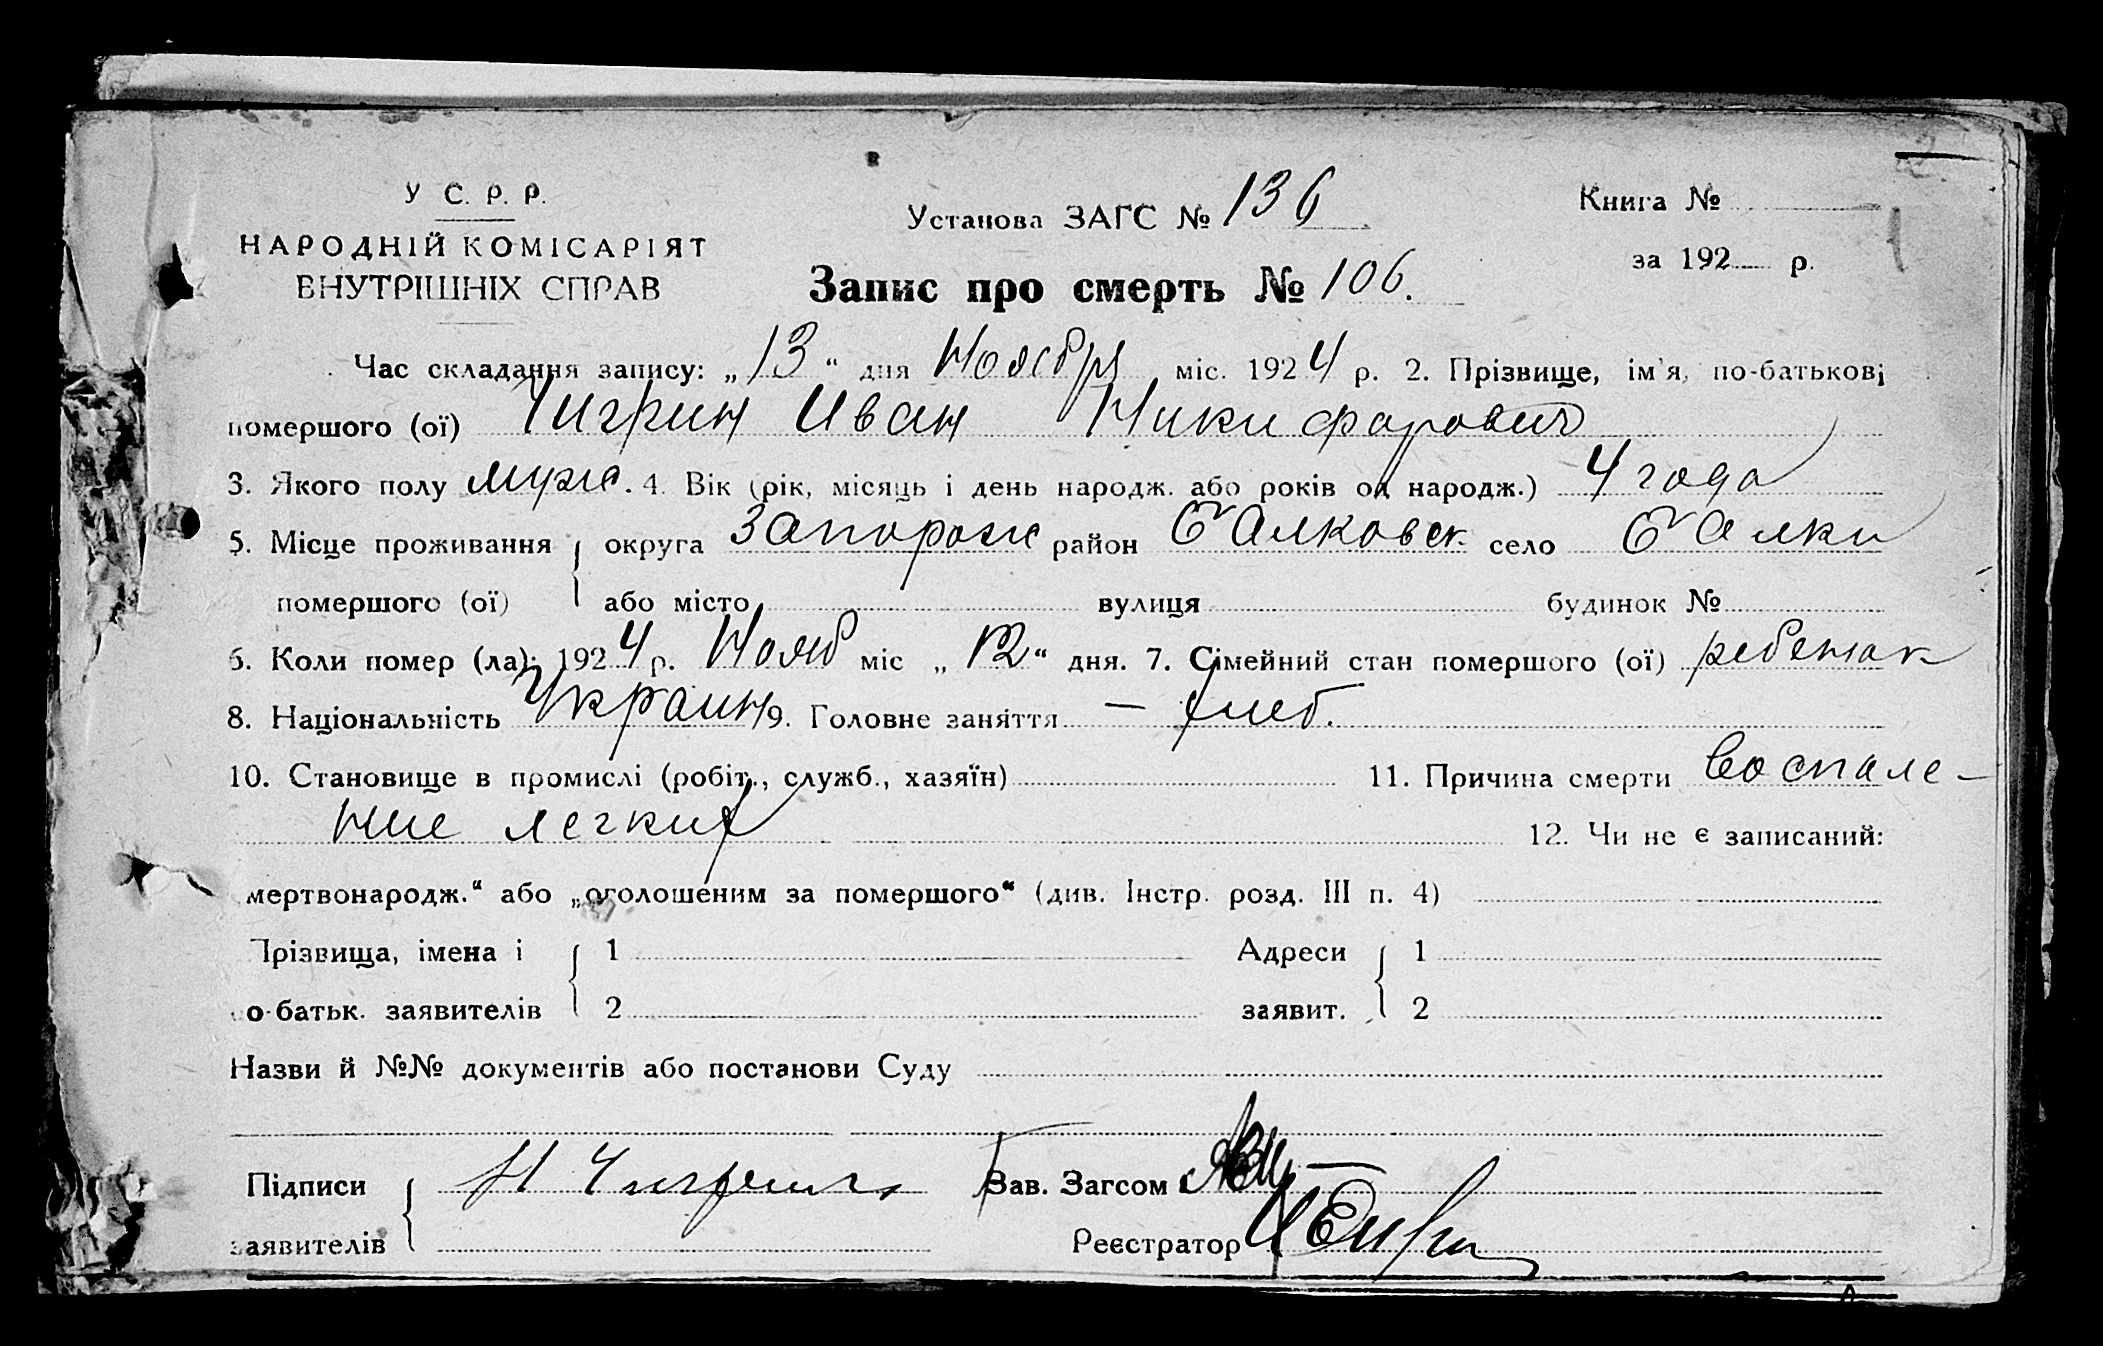 У С. Р. Р.
НАРОДНІЙ КОМІСАРІЯТ
ВНУТРІШНІХ СПРАВ
Установа ЗАГС № 136
Книга №
за 192 р.
Запис про смерть № 106.
Час складання запису: „13“ дня Ноября міс. 1924 р. 2. Прізвище, ім'я, по-батькові
помершого (ої) Чигрин Иван Никифорович
3. Якого полу муж. 4. Вік (рік, місяць і день народж. або років од народж.) 4 года
5. Місце проживання округа Запорож район Балковск село Балки
помершого (ої) або місто вулиця будинок №
6. Коли помер (ла): 1924 р. Нояб міс „12“ дня. 7. Сімейний стан помершого (ої) ребенок
8. Національність Украин 9. Головне заняття — хлеб.
10. Становище в промислі (робіт., служб., хазяїн) 11. Причина смерти воспале-
ние легких 12. Чи не є записаний:
мертвонародж.“ або „оголошеним за помершого“ (див. Інстр. розд. III п. 4)
Прізвища, імена і 1 Адреси 1
о-батьк. заявителів 2 заявит. 2
Назви й №№ документів або постанови Суду
Підписи Н Чигрин Зав. Загсом
заявителів Реєстратор